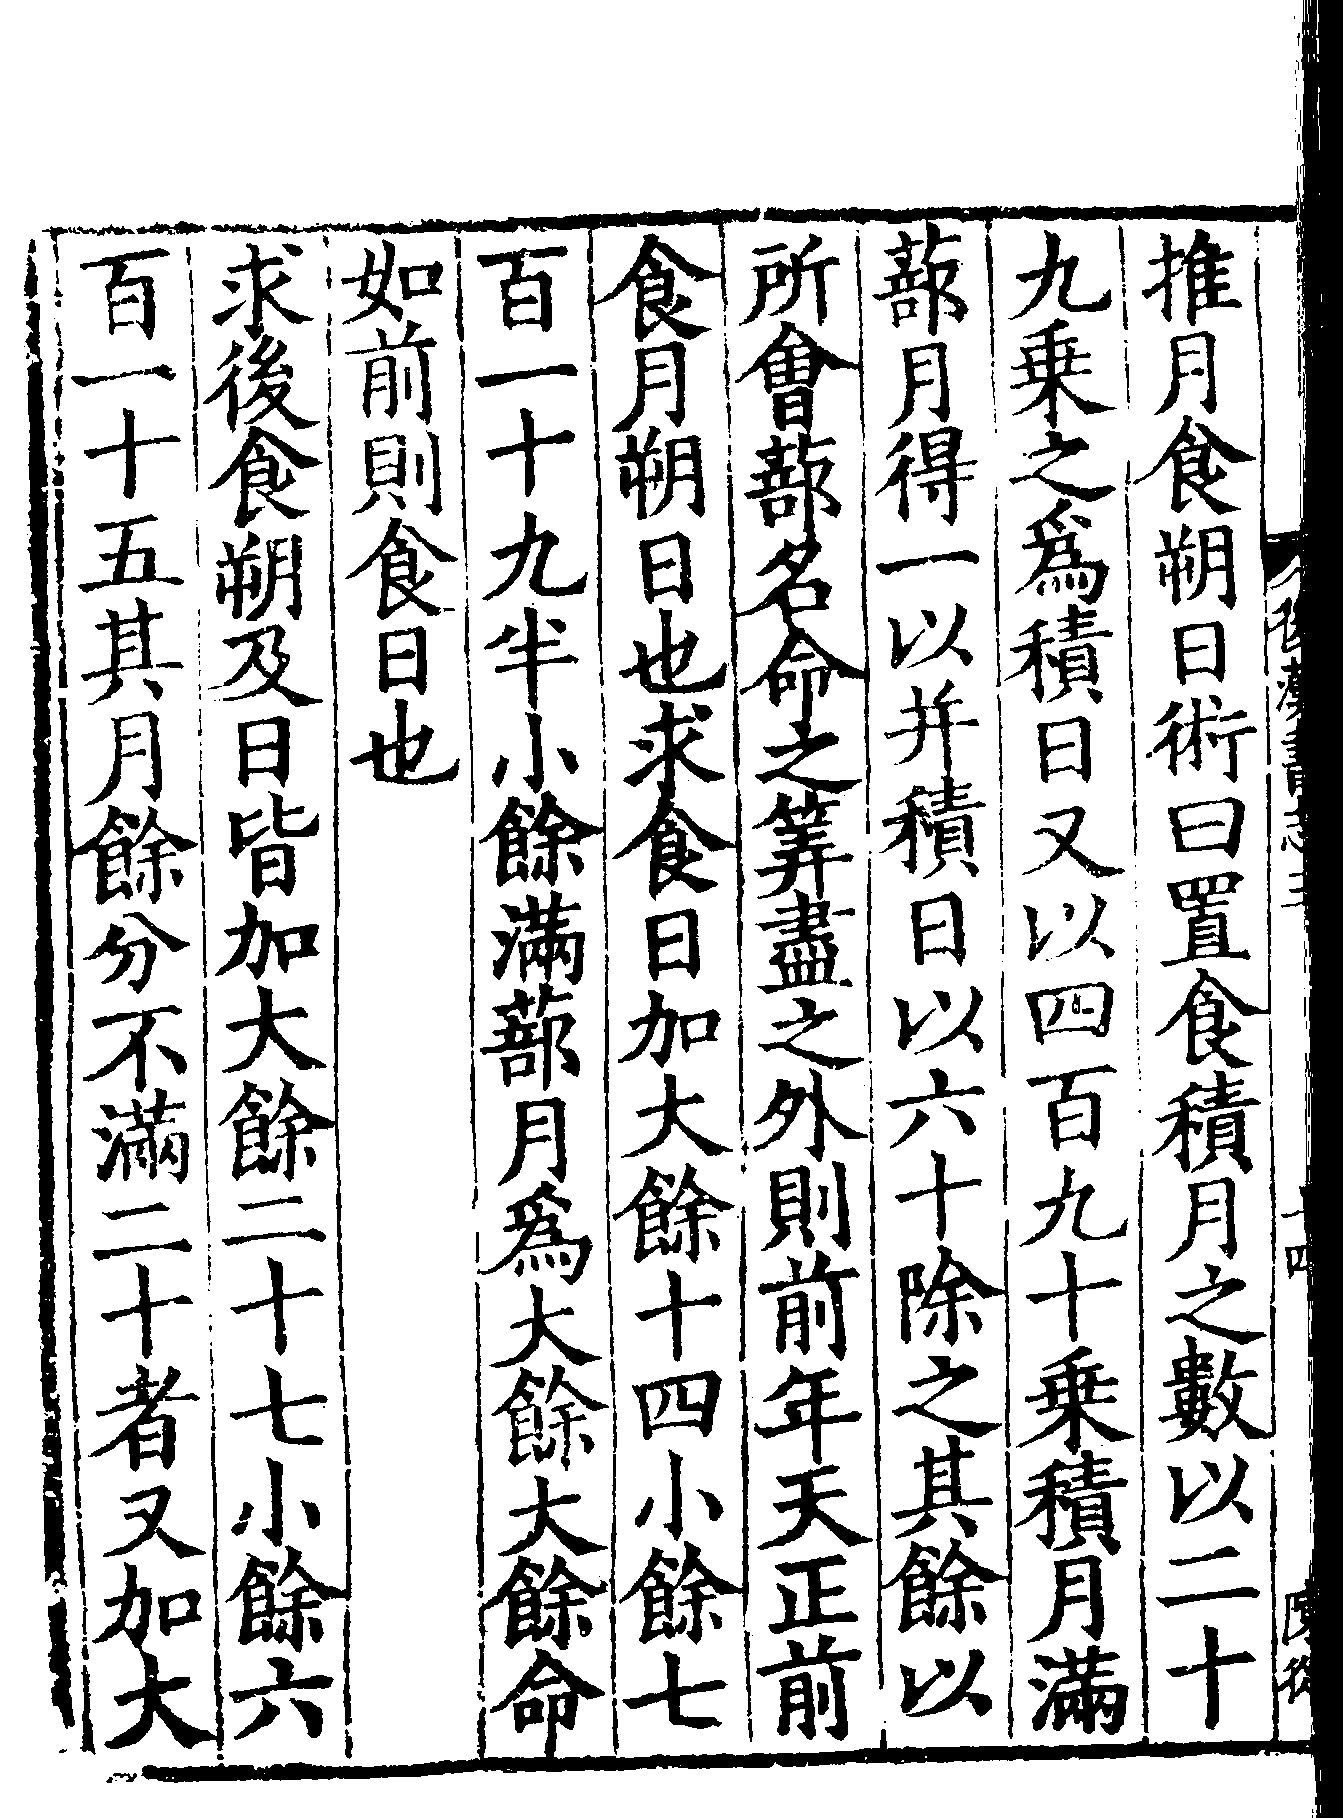 推月食朔日術曰置食積月之數以二十
九乗之爲積日又以四百九十乗積月滿
蔀月得一以并積日以六十除之其餘以
所會蔀名命之筭盡之外則前年天正前
食月朔日也求食日加大餘十四小餘七
百一十九半小餘滿蔀月爲大餘大餘命
如前則食日也
求後食朔及日皆加大餘二十七小餘六
百一十五其月餘分不滿二十者又加大